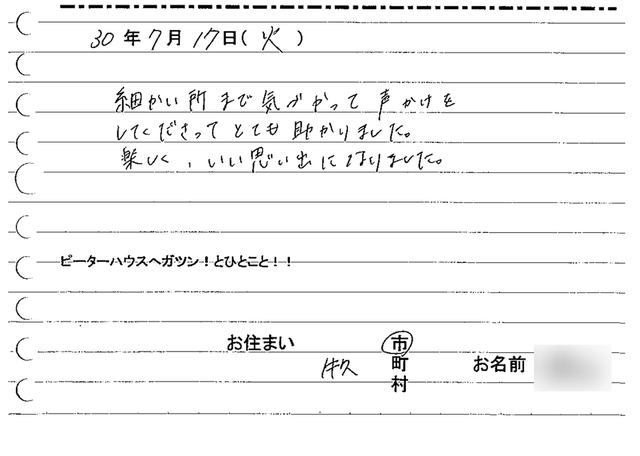 30年7月17日(火)
細かい所まで気づかって声かけを
してくださってとても助かりました。
楽しく、いい思い出になりました。
ピーターハウスへガツン！とひとこと！！
お住まい
牛久
市
町
村
お名前